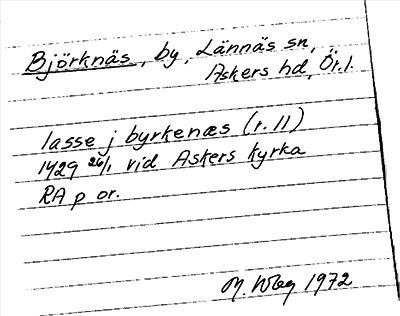 Björknäs, by, Lännäs sn,
Askers hd, Ör.l.
lasse j byrkenæs (r. 11)
1429 26/1 vid Askers kyrka
RA p or.
M. 1972